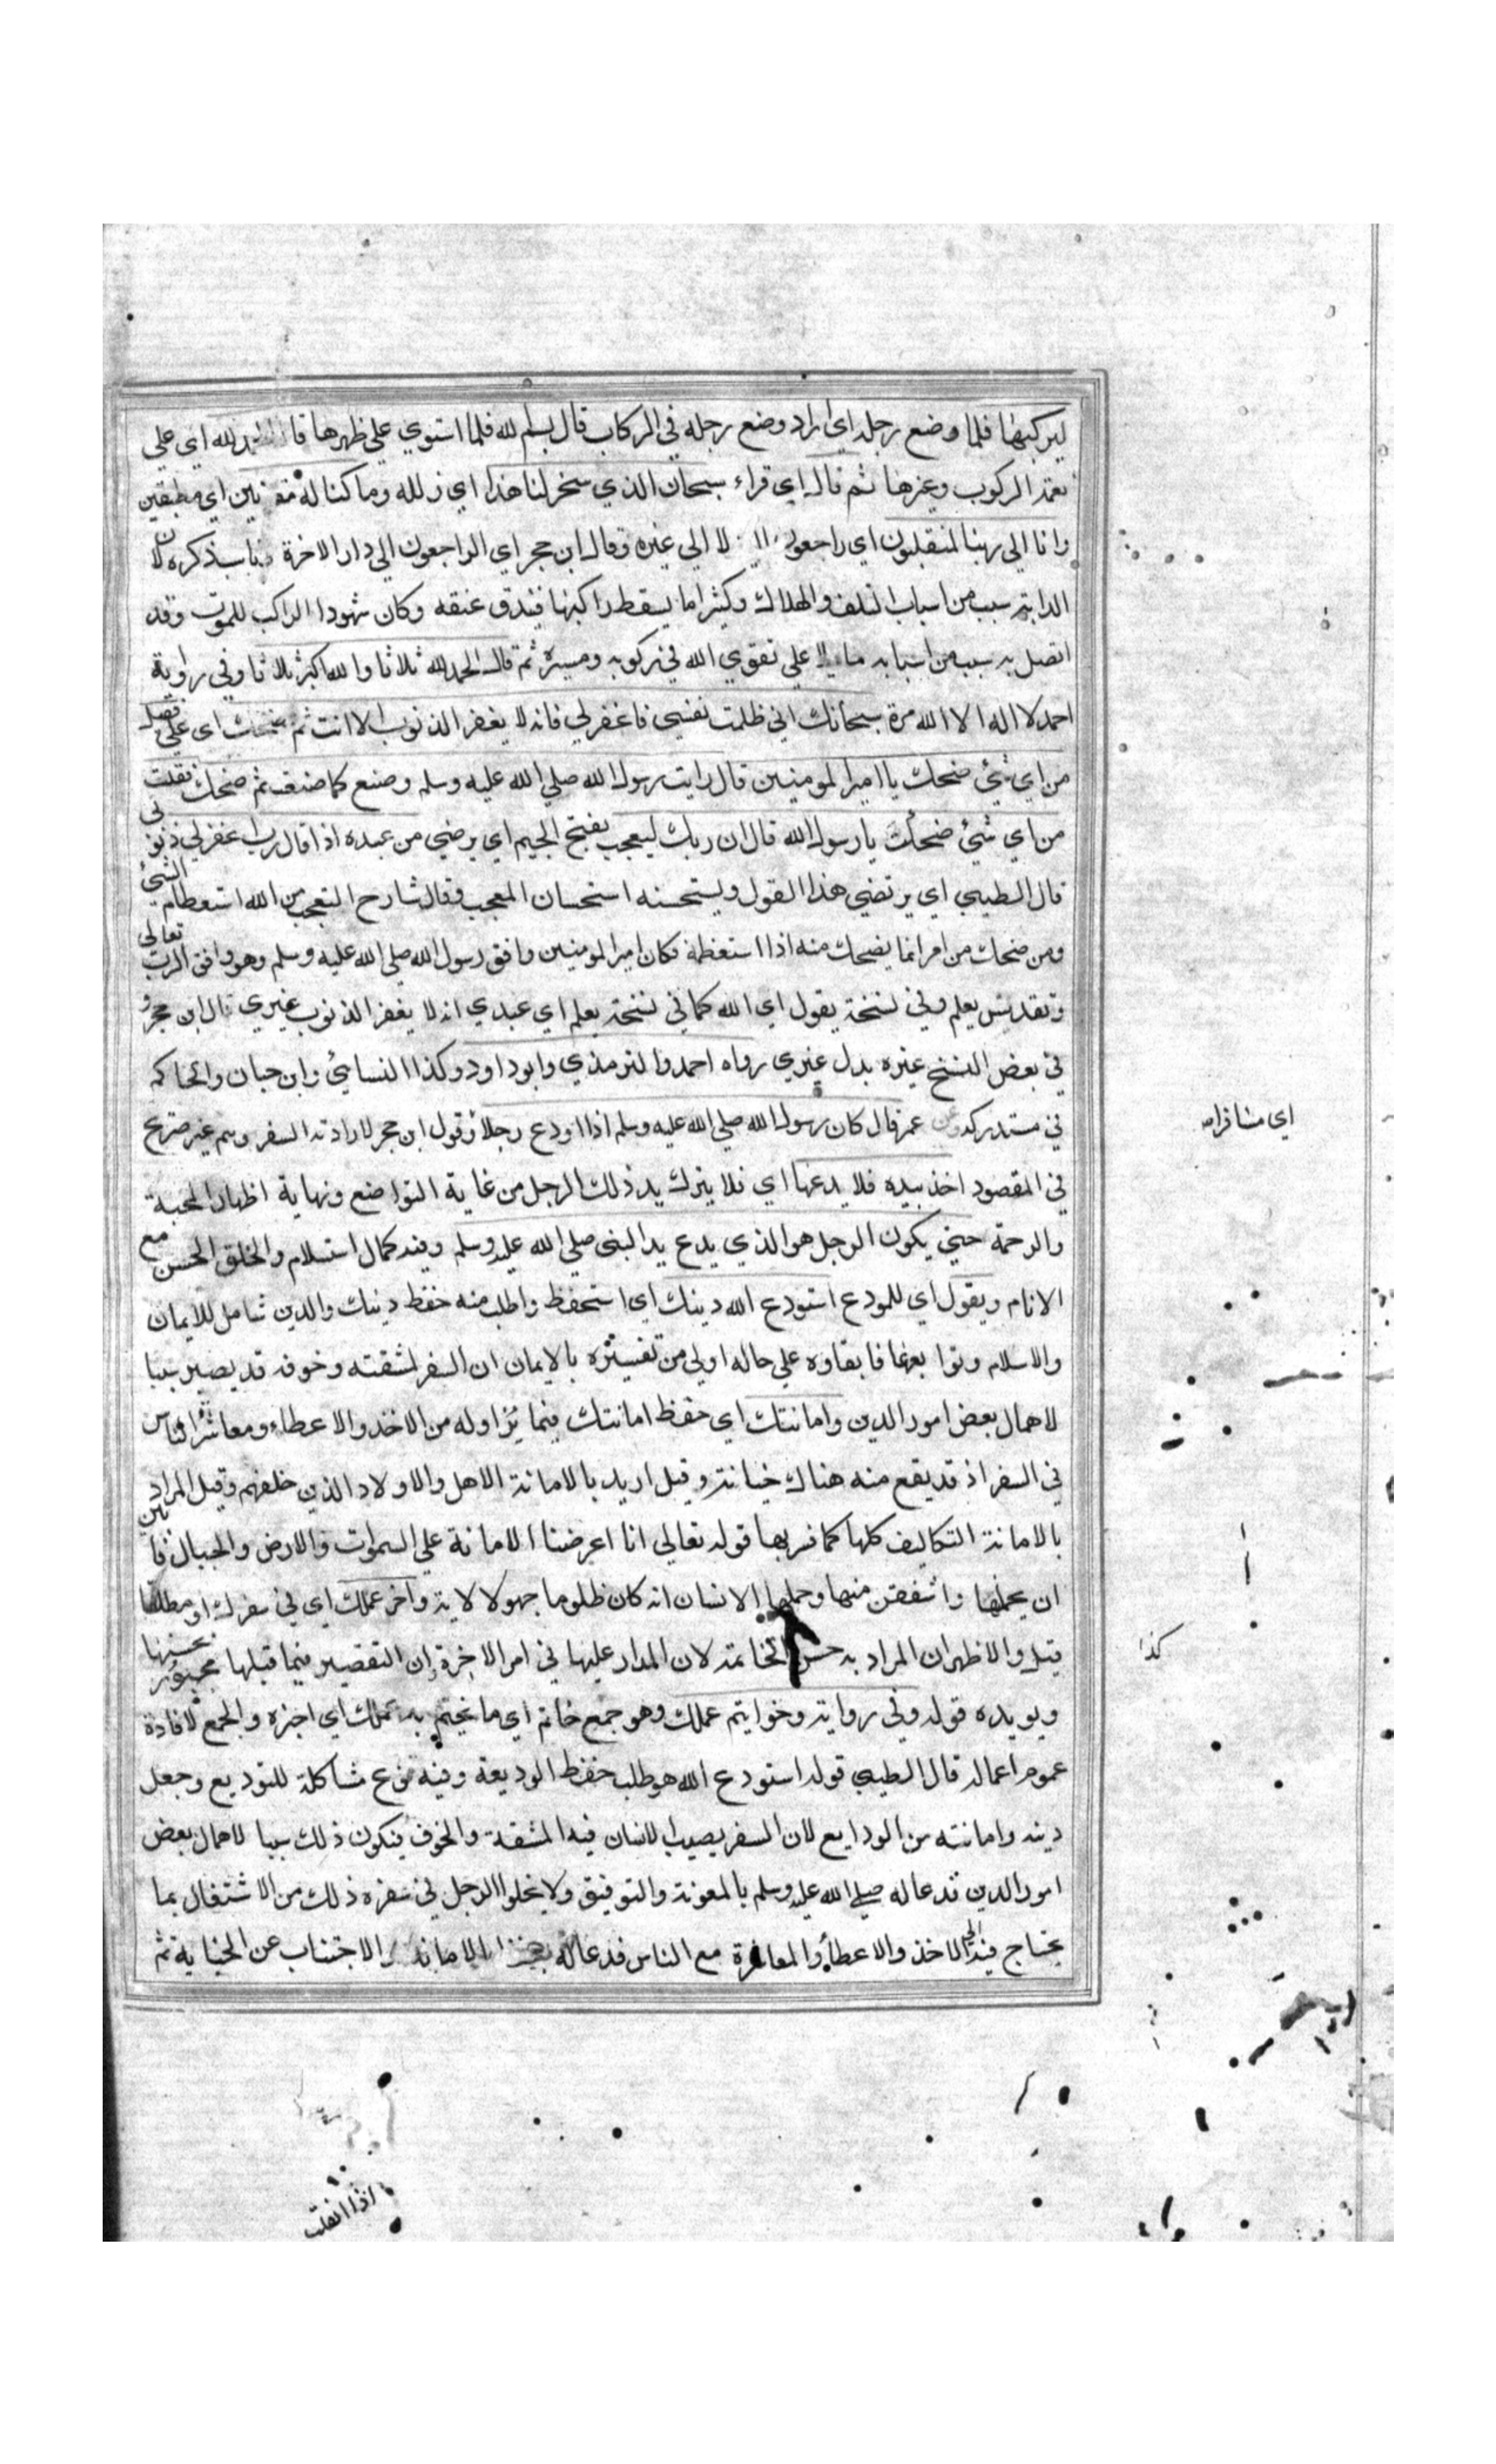 ليركبها فلما وضع رجله اي اراد وضع رجله في الركاب قال بسم لله فلما استوي علي ظهرها قال الحمد لله اي علي
نعمة الركوب وغيرها ثم قال اي قراء سبحان الذي سخر لنا هذا اي ذلله وما كنا له مقرنين اي مطيقين
وانا الي ربنا لمنقلبون اي راجعون لا الي غيره وقال ابن حجر اي الراجعون الي دار الاخرة فناسب ذكره لان
الدابة سبب من اسباب التلف والهلاك وكثيرا ما يسقط راكبها فيندق عنقه وكان شهودا الراكب للموت وقد
اتصل به سبب من اسبابه علي تقوي الله في ركوبه ومسيره ثم قال الحمد لله ثلاثا والله اكبر ثلاثا وفي رواية
احمد لا اله الا الله مرة سبحانك اني ظلمت نفسي فاغفر لي فانه لا يغفر الذنوب الا انت ثم ضحك اي علي فقيل
من اي شيء ضحكت يا امير المومنين قال رايت رسول الله صلي الله عليه وسلم وصنع كما صنعت ثم ضحك فقلت
من اي شيء ضحكت يا رسول الله قال ان ربك ليعجب بفتح الجيم اي يرضي من عبده اذا قال رب اغفر لي ذنوبي
قال الطيبي اي يرتضي هذا القول ويستحسنه استحسان المعجب وقال شارح التعجب من الله استعظام الشيء
ومن ضحك من امر انما يضحك منه اذا استعظمه فكان امير المومنين وافق رسول الله صلي الله عليه وسلم وهو وافق الرب تعالي
وتقدس يعلم وفي نسخة يقول اي الله كما في نسخة يعلم اي عبدي انه لا يغفر الذنوب غيري قال ابن حجر و
في بعض النسخ غيره بدل غيري رواه احمد والترمذي وابو داود وكذا النسائي وابن حبان والحاكم
في مستدركه وعن عمر قال كان رسول الله صلي الله عليه وسلم اذا اودع رجلا وقول ابن حجر لارادته السفر وهم غير صريح
اي مسافرا
في المقصود اخذ بيده فلا يدعها اي فلا يترك يد ذلك الرجل من غاية التواضع ونهاية اظهار المحبة
والرحمة حتي يكون الرجل هو الذي يدع يد النبي صلي الله عليه وسلم وفيه كمال استسلام والخلق الحسن مع
الانام ويقول اي للمودع استودع الله دينك اي استحفظ واطلب منه حفظ دينك والدين شامل للايمان
والاسلام وتوابعهما فابقاوه علي حاله اولي من تفسيره بالايمان ان السفر لمشقته وخوفه قد يصير سببا
لاهمال بعض امور الدين وامانتك اي حفظ امانتك فيما يزاوله من الاخذ والاعطاء ومعاشرة الناس
في السفر اذ قد يقع منه هناك خيانة وقيل اريد بالامانة الاهل والاولاد الذين خلفهم وقيل المراد
بالامانة التكاليف كلها كما فسر بها قوله تعالي انا اعرضنا الامانة علي السموات والارض والجبال فابين
ان يحملنها واشفقن منها وحملها الانسان انه كان ظلوما جهولا لاية واخر عملك اي في سفرك او مطلقا
قيل والاظهر ان المراد به حسن الخاتمة لان المدار عليها في امر الاخرة وان التقصير فيما قبلها مجبور بحسنها
كذا
ويويده قوله وفي رواية وخوايتم عملك وهو جمع خاتم اي ما يختم به عملك اي اخره والجمع لافادة
عموم اعماله قال الطيبي قوله استودع الله هو طلب حفظ الوديعة وفيه نوع مشاكلة للتوديع وجعل
دينه وامانته من الودايع لان السفر يصيب الانسان فيه المشقة والخوف فيكون ذلك سببا لاهمال بعض
امور الدين فدعا له صلي الله عليه وسلم بالمعونة والتوفيق ولا يخلوا الرجل في سفره ذلك من الاشتغال بما
يحتاج فيه الي الاخذ والاعطاء والمعاشرة مع الناس فدعا له بحفظ الامانة والاجتناب عن الخيانة ثم
اذا انقلب